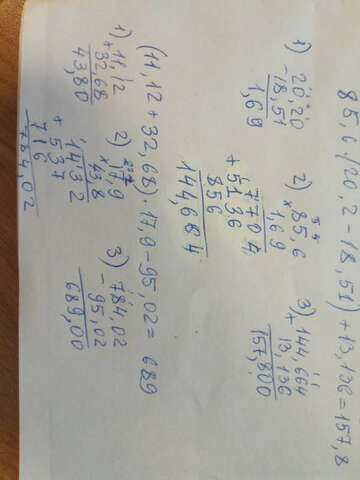 85,6 (20,2 - 18,51) + 13,136 = 157,8
1) 20,20
- 18,51
1,69
2) 85,6
× 1,69
7704
+ 5136
856
144,664
3) 144,664
+ 13,136
157,800
(11,12 + 32,68) · 17,9 - 95,02 = 689
1) 11,12
+ 32,68
43,80
2) 17,9
× 43,8
1432
+ 537
716
784,02
3) 784,02
- 95,02
689,00